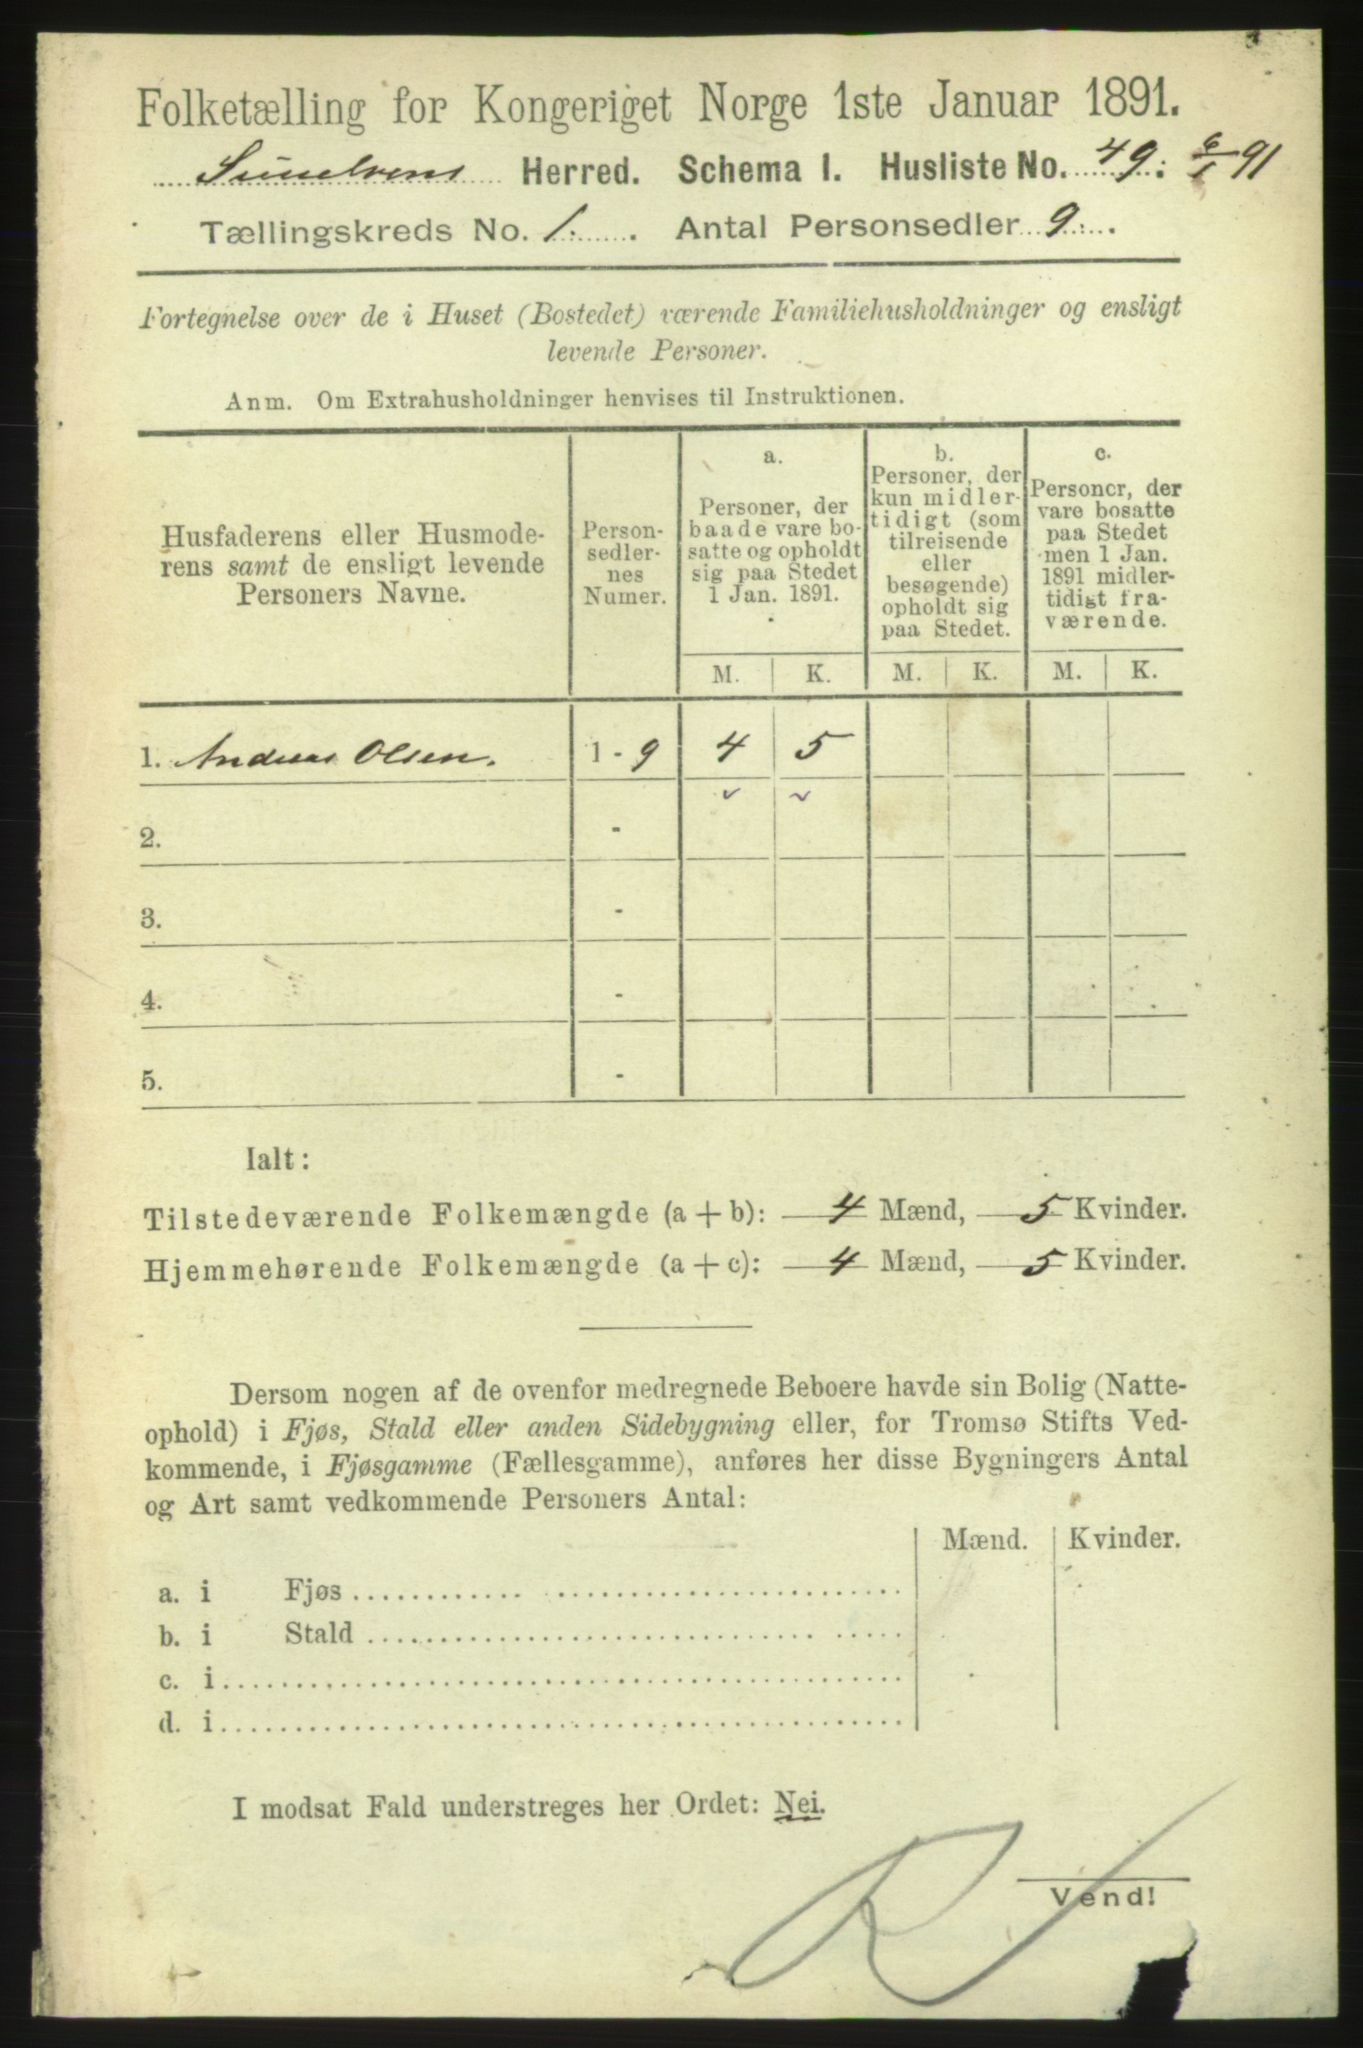 Folketælling for Kongeriget Norge 1ste Januar 1891.
Sunelvens Herred. Schema I. Husliste No. 49: 6/1 91
Tællingskreds No. 1. Antal Personsedler 9.
Fortegnelse over de i Huset (Bostedet) værende Familiehusholdninger og ensligt
levende Personer.
Anm. Om Extrahusholdninger henvises til Instruktionen.
Husfaderens eller Husmode-
rens samt de ensligt levende
Personers Navne.
Person-
sedler-
nes
Numer.
a.
Personer, der
baade vare bo-
satte og opholdt
sig paa Stedet
1 Jan. 1891.
b.
Personer, der
kun midler-
tidigt (som
tilreisende
eller
besøgende)
opholdt sig
paa Stedet.
c.
Personer, der
vare bosatte
paa Stedet
men 1 Jan.
1891 midler-
tidigt fra-
værende.
M. K. M. K. M. K.
1. Andreas Olsen. 1 - 9 4 5
2. -
3. -
4. -
5. -
Ialt:
Tilstedeværende Folkemængde (a + b): 4 Mænd, 5 Kvinder.
Hjemmehørende Folkemængde (a + c): 4 Mænd, 5 Kvinder.
Dersom nogen af de ovenfor medregnede Beboere havde sin Bolig (Natte-
ophold) i Fjøs, Stald eller anden Sidebygning eller, for Tromsø Stifts Ved-
kommende, i Fjøsgamme (Fællesgamme), anføres her disse Bygningers Antal
og Art samt vedkommende Personers Antal:
Mænd. Kvinder.
a. i Fjøs
b. i Stald
c. i
d. i
I modsat Fald understreges her Ordet: Nei.
Vend!
R